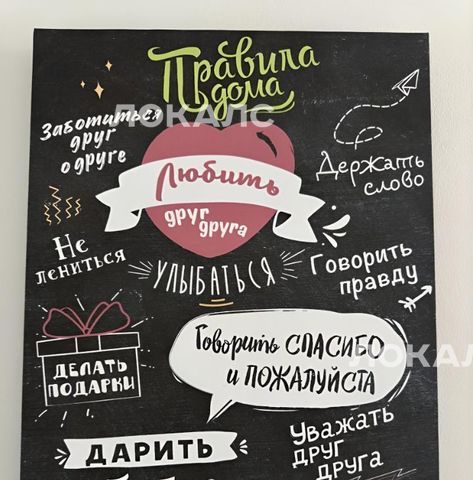 Правила
дома
ЛОКАЛС
Заботиться
друг
о друге
Любить
друг
друга
Держать
слово
Не
лениться
УЛЫБАТЬСЯ
Говорить
правду
ДЕЛАТЬ
ПОДАРКИ
Говорить СПАСИБО
и ПОЖАЛУЙСТА
ЛОКАЛС
ДАРИТЬ
Уважать
друг
друга